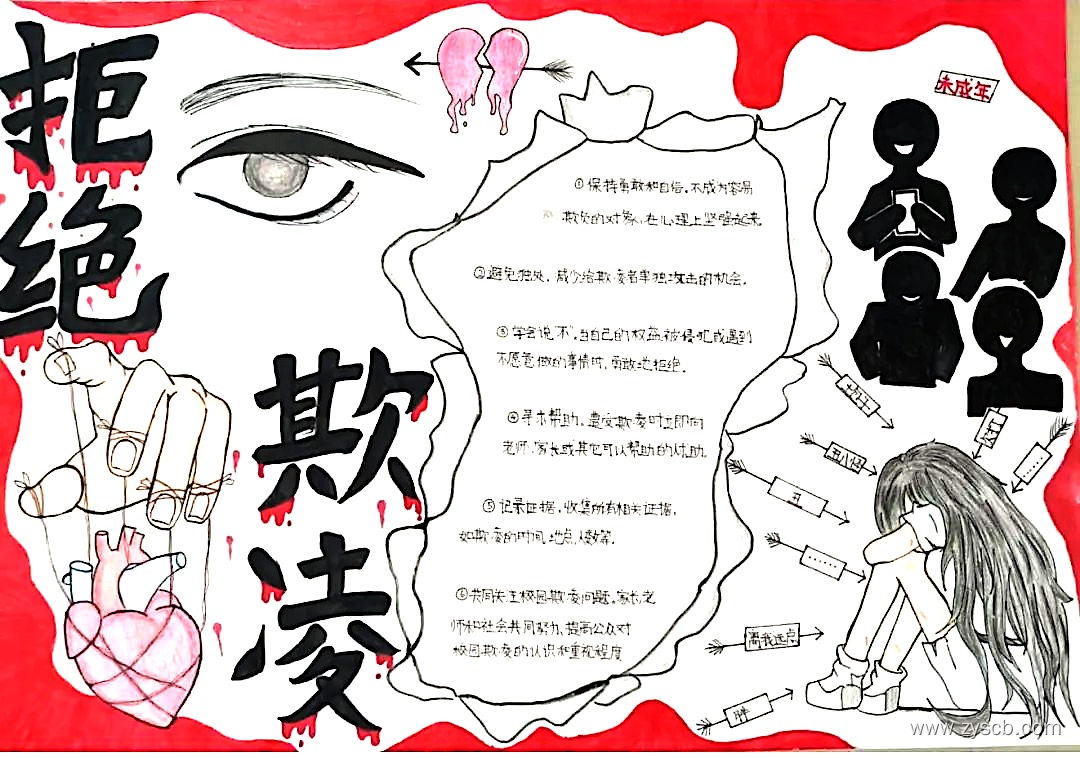 拒绝
欺凌
未成年
①保持勇敢和自信,不成为容易
欺负的对象,在心理上坚强起来
②避免独处,减少给欺凌者单独攻击的机会。
③学会说"不",当自己的权益被侵犯或遇到
不愿意做的事情时,勇敢地拒绝。
④寻求帮助,遭受欺凌时立即向
老师,家长或其它可以帮助的人求助。
⑤记录证据,收集所有相关证据,
如欺凌的时间,地点,人数等。
⑥共同关注校园欺凌问题,家长老
师和社会共同努力,提高公众对
校园欺凌的认识和重视程度
丑八怪
丑
......
......
离我远点
胖
www.zyscb.com